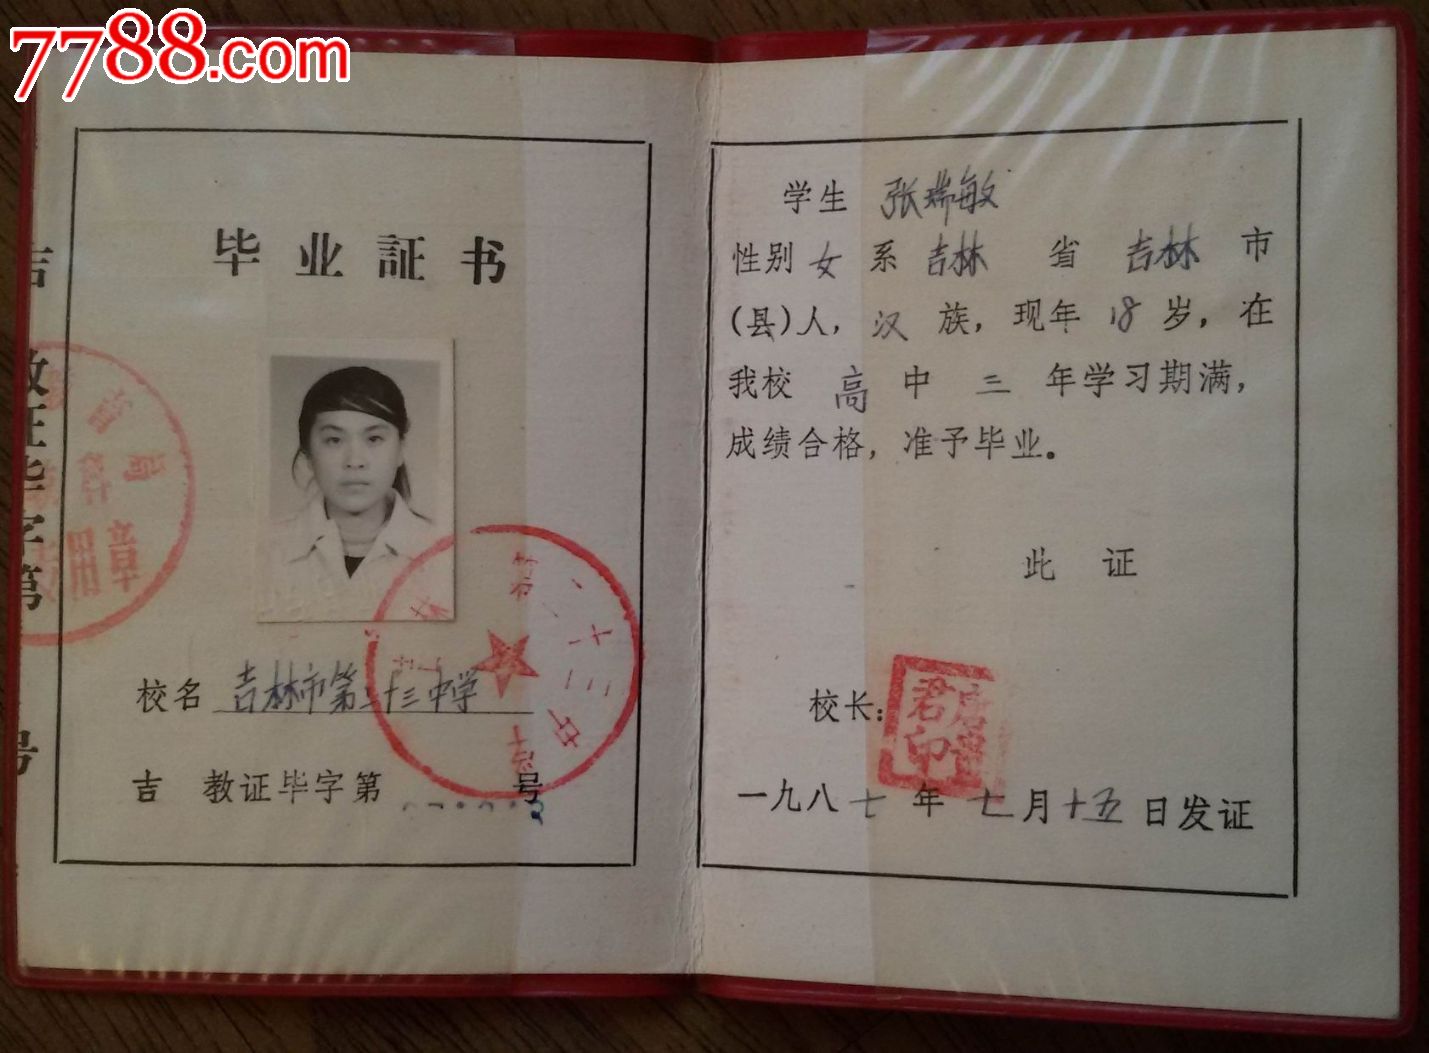 7788.com
吉
教证毕字第
号
毕业証书
校名 吉林市第二十三中学
吉 教证毕字第 号
学生 张瑞敏
性别 女 系 吉林 省 吉林 市
(县)人，汉 族，现年 18 岁，在
我校 高 中 三 年学习期满，
成绩合格，准予毕业。
此 证
校长：
一九八七年七月十五日发证